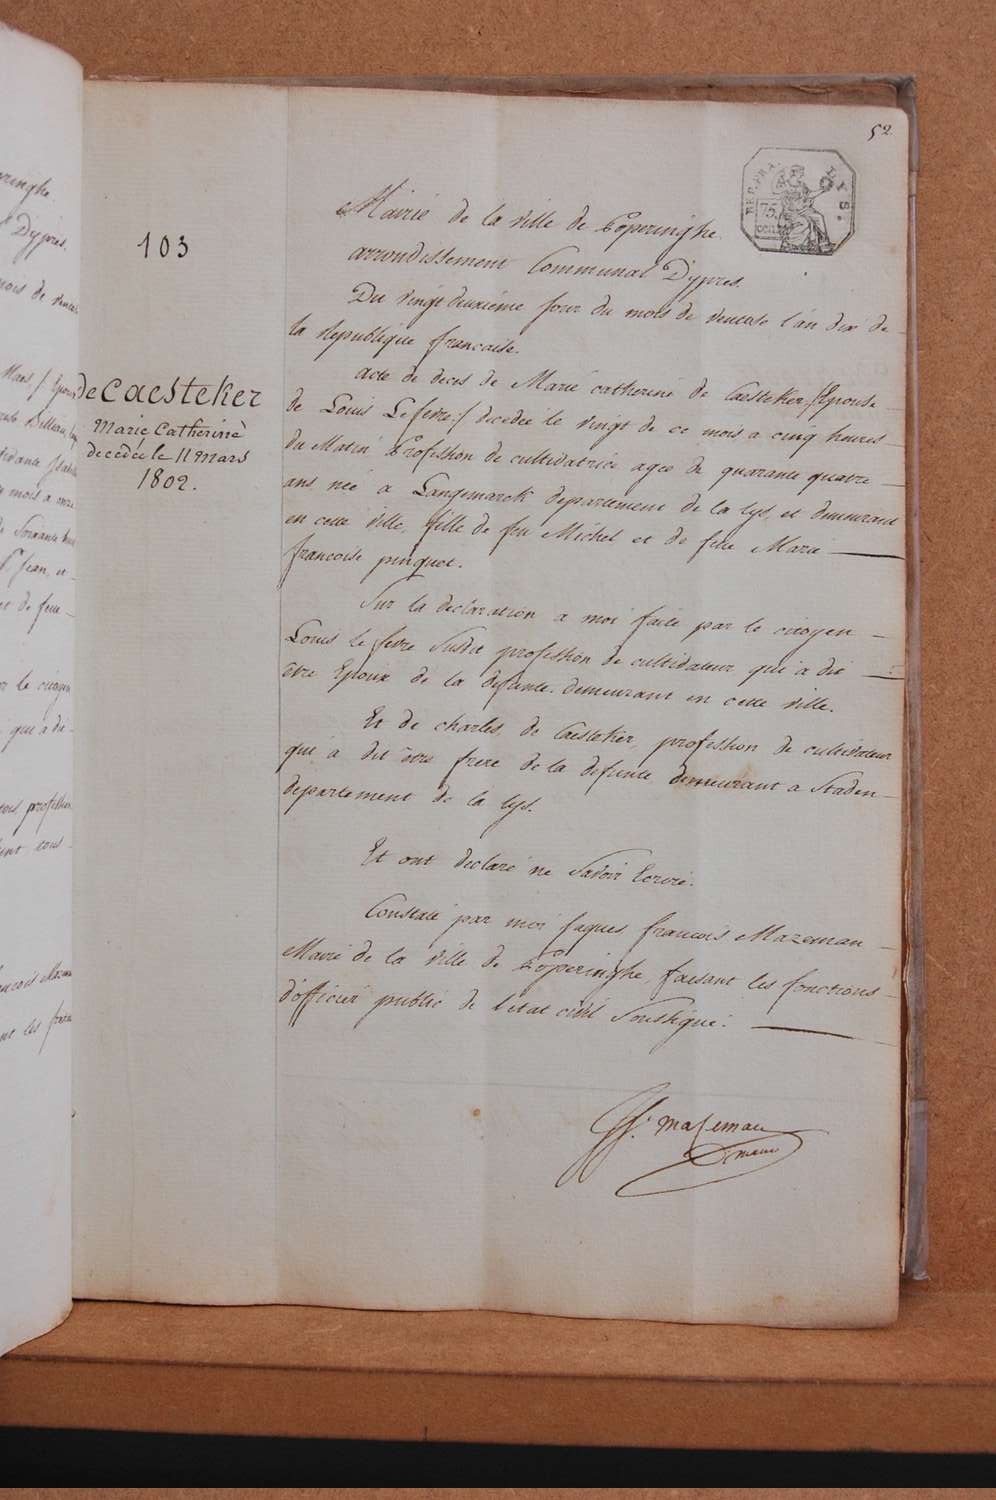 52
REP. FRA.
LYS.
75
cen.
103
de Caesteker
Marie Catherine
decédée le 11 Mars
1802.
Mairie de la ville de Poperinghe
arrondissement Communal D'ypres.
Du vingt deuxième jour du mois de ventose l'an dix de
la Republique francaise.
acte de deces de Marie catherine de Caesteker /: Epouse
de Louis Lefevre :/ decedée le vingt de ce mois a cinq heures
du Matin Profession de cultivatrice agee de quarante quatre
ans née a Langemarck departement de la lys, et demeurant
en cette ville, fille de feu Michel et de feue Marie
francoise pinquet.
Sur la declaration a moi faite par le citoyen
Louis le fevre Susdit profession de cultivateur qui a dit
être Epoux de la defunte demeurant en cette ville.
Et de charles de Caesteker, profession de cultivateur
qui a dit être frere de la defunte demeurant a Staden
departement de la lys.
Et ont declaré ne Savoir Ecrire.
Constaté par moi Jaques francois Mazeman
Maire de la ville de Poperinghe, faisant les fonctions
d'officier public de l'etat civil Soussigné.
JF. Mazeman
maire